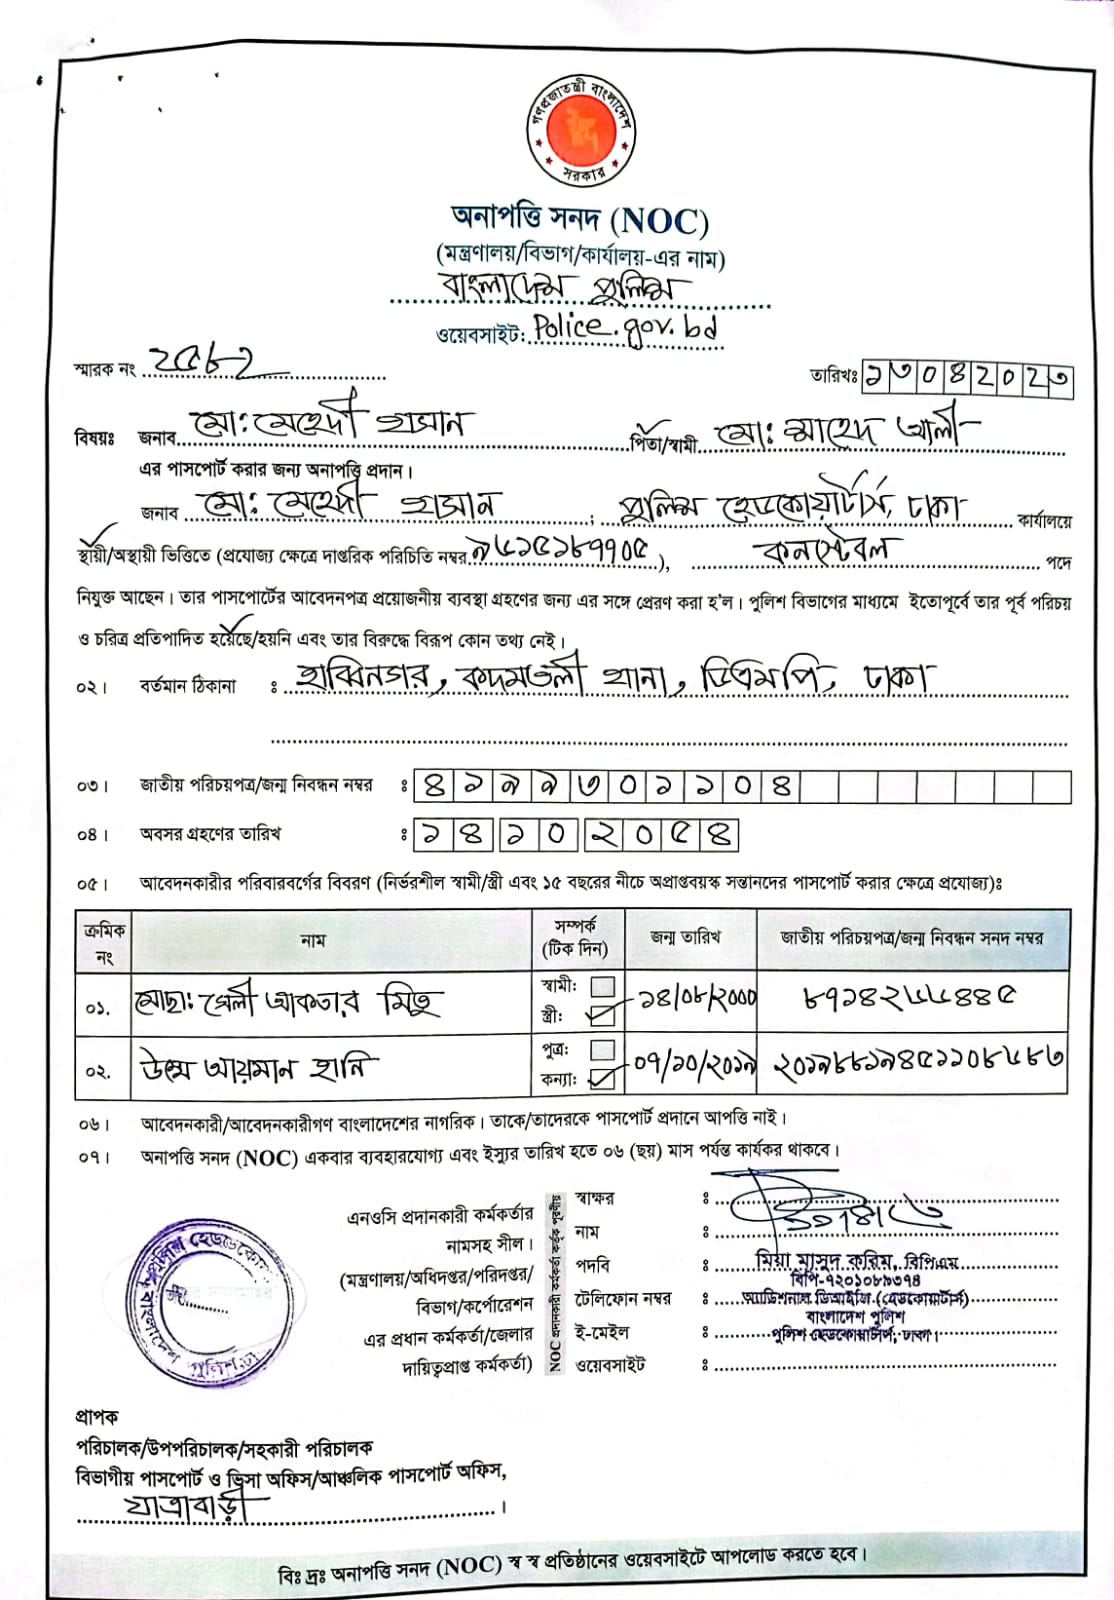 গণপ্রজাতন্ত্রী বাংলাদেশ
সরকার
অনাপত্তি সনদ (NOC)
(মন্ত্রণালয়/বিভাগ/কার্যালয়-এর নাম)
বাংলাদেশ পুলিশ
ওয়েবসাইট: Police.gov.bd
স্মারক নং ২৫৮২
তারিখঃ ১৩০৪২০২৩
বিষয়ঃ জনাব মো: মেহেদী হাসান পিতা/স্বামী মো: সাহেদ আলী
এর পাসপোর্ট করার জন্য অনাপত্তি প্রদান।
জনাব মো: মেহেদী হাসান ; পুলিশ হেডকোয়ার্টার্স, ঢাকা কার্যালয়ে
স্থায়ী/অস্থায়ী ভিত্তিতে (প্রযোজ্য ক্ষেত্রে দাপ্তরিক পরিচিতি নম্বর ৯৬১৫১৮৭৭০৫), কনস্টেবল পদে
নিযুক্ত আছেন। তার পাসপোর্টের আবেদনপত্র প্রয়োজনীয় ব্যবস্থা গ্রহণের জন্য এর সঙ্গে প্রেরণ করা হ'ল। পুলিশ বিভাগের মাধ্যমে ইতোপূর্বে তার পূর্ব পরিচয়
ও চরিত্র প্রতিপাদিত হয়েছে/হয়নি এবং তার বিরুদ্ধে বিরূপ কোন তথ্য নেই।
০২। বর্তমান ঠিকানা : হাবিনগর, কদমতলী থানা, ডিএমপি, ঢাকা
০৩। জাতীয় পরিচয়পত্র/জন্ম নিবন্ধন নম্বর : ৪১৯৯৩০১১০৪
০৪। অবসর গ্রহণের তারিখ : ১৪ ১০ ২০৫৪
০৫। আবেদনকারীর পরিবারবর্গের বিবরণ (নির্ভরশীল স্বামী/স্ত্রী এবং ১৫ বছরের নীচে অপ্রাপ্তবয়স্ক সন্তানদের পাসপোর্ট করার ক্ষেত্রে প্রযোজ্য)ঃ
ক্রমিক নং নাম সম্পর্ক (টিক দিন) জন্ম তারিখ জাতীয় পরিচয়পত্র/জন্ম নিবন্ধন সনদ নম্বর
স্বামী:
০১. মোছা: শেলী আকতার মিতু স্ত্রী: ১৪/০৮/২০০০ ৮৭১৪২৬৬৪৪৫
পুত্র:
০২. উম্মে আয়মান হানি কন্যা: ০৭/১০/২০১৯ ২০১৯৮৮১৯৪৫১১০৮৬৮৩
০৬। আবেদনকারী/আবেদনকারীগণ বাংলাদেশের নাগরিক। তাকে/তাদেরকে পাসপোর্ট প্রদানে আপত্তি নাই।
০৭। অনাপত্তি সনদ (NOC) একবার ব্যবহারযোগ্য এবং ইস্যুর তারিখ হতে ০৬ (ছয়) মাস পর্যন্ত কার্যকর থাকবে।
এনওসি প্রদানকারী কর্মকর্তার
নামসহ সীল।
(মন্ত্রণালয়/অধিদপ্তর/পরিদপ্তর/
বিভাগ/কর্পোরেশন
এর প্রধান কর্মকর্তা/জেলার
দায়িত্বপ্রাপ্ত কর্মকর্তা)
NOC প্রদানকারী কর্মকর্তা কর্তৃক পূরণীয়
স্বাক্ষর :
নাম :
পদবি : মিয়া মাসুদ করিম, বিপিএম
বিপি-৭২০১০৮৯৩৭৪
টেলিফোন নম্বর : অ্যাডিশনাল ডিআইজি (হেডকোয়ার্টার্স)
বাংলাদেশ পুলিশ
ই-মেইল : পুলিশ হেডকোয়ার্টার্স, ঢাকা।
ওয়েবসাইট :
বাংলাদেশ পুলিশ
প্রাপক
পরিচালক/উপপরিচালক/সহকারী পরিচালক
বিভাগীয় পাসপোর্ট ও ভিসা অফিস/আঞ্চলিক পাসপোর্ট অফিস,
যাত্রাবাড়ী।
বিঃ দ্রঃ অনাপত্তি সনদ (NOC) স্ব স্ব প্রতিষ্ঠানের ওয়েবসাইটে আপলোড করতে হবে।